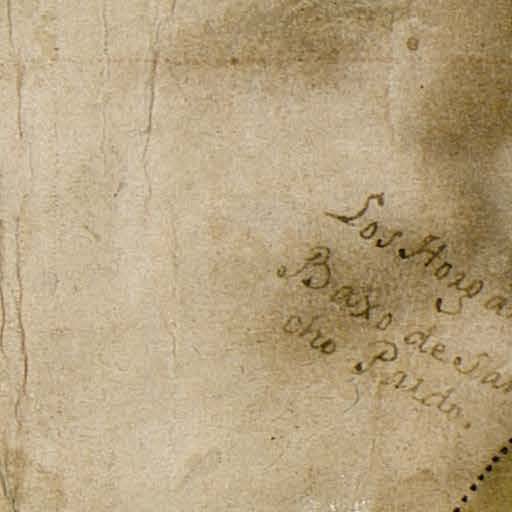 Los Horga
Baxo de San
cho Pardo.